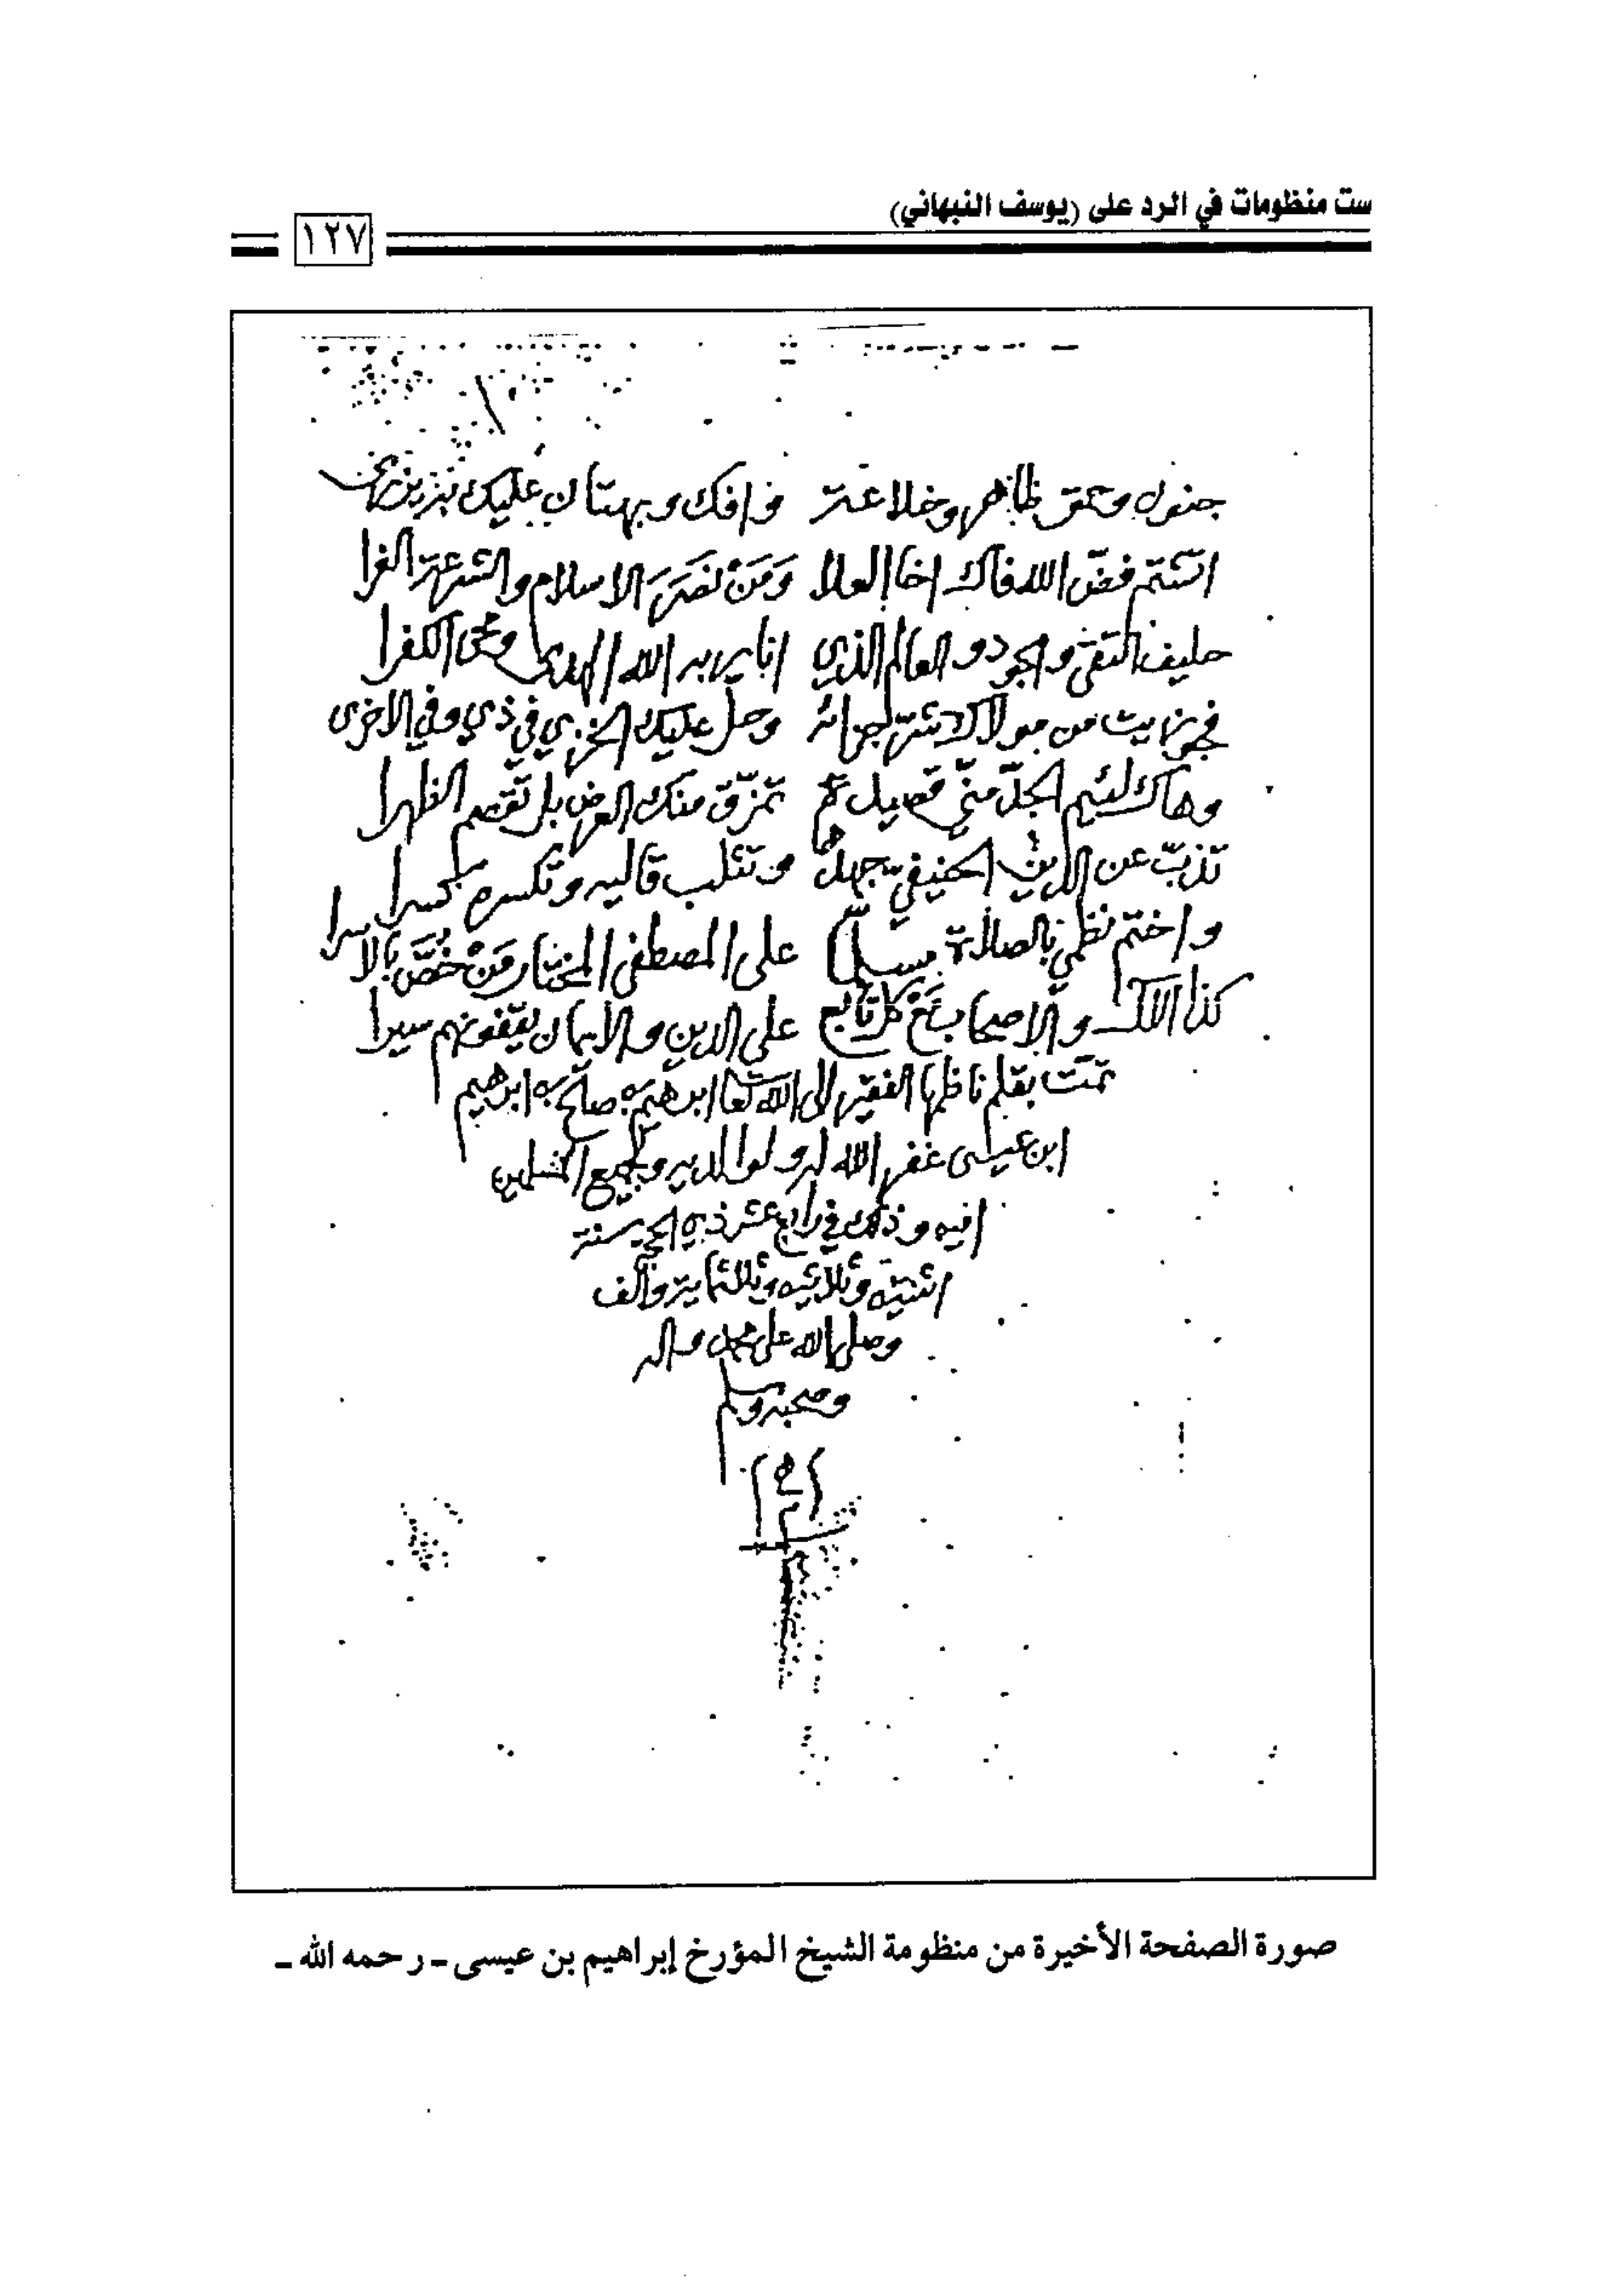 ست منظومات في الرد على (يوسف النبهاني)
١٢٧
جنون وحمق ظاهر وخلاعة وافك وبهتان عليك
اتشتم فض الله فاك اخا العلا ومَنْ نصَرَ الاسلام والشرعة الغرا
حليف التقى والجود والعالم الذي انار به الله الهدى ومحى الكفرا
فجوزيت من مولاك شر جزائه وحل عليك الخزي في ذي وفي الاخرى
وهاك لئيم الجدّ منّي قصيدة تمزّق منك العرض بل تقصم الظهرا
تذبّ عن الدين الحنيفي جهدها وتثلب قاليه وتكسره كسرا
واختم نظمي بالصلاة مسلما على المصطفى المختار مَنْ خُصَّ بالاسرا
كذا الآل والاصحاب مَعْ كل تابع على الدين والايمان يقفونهم سيرا
تمّت بقلم ناظمها الفقير الى الله تعا ابرهيم بن صالح بن ابرهيم
ابن عيسى غفر الله له ولوالديه ولجميع المسلمين
امين وذلك في رابع عشر ذي الحجة سنة
اثنين وثلاثين وثلاثماية والف
وصلى الله على محمد واله
وصحبه وسلم
صورة الصفحة الأخيرة من منظومة الشيخ المؤرخ إبراهيم بن عيسى ـ رحمه الله ـ